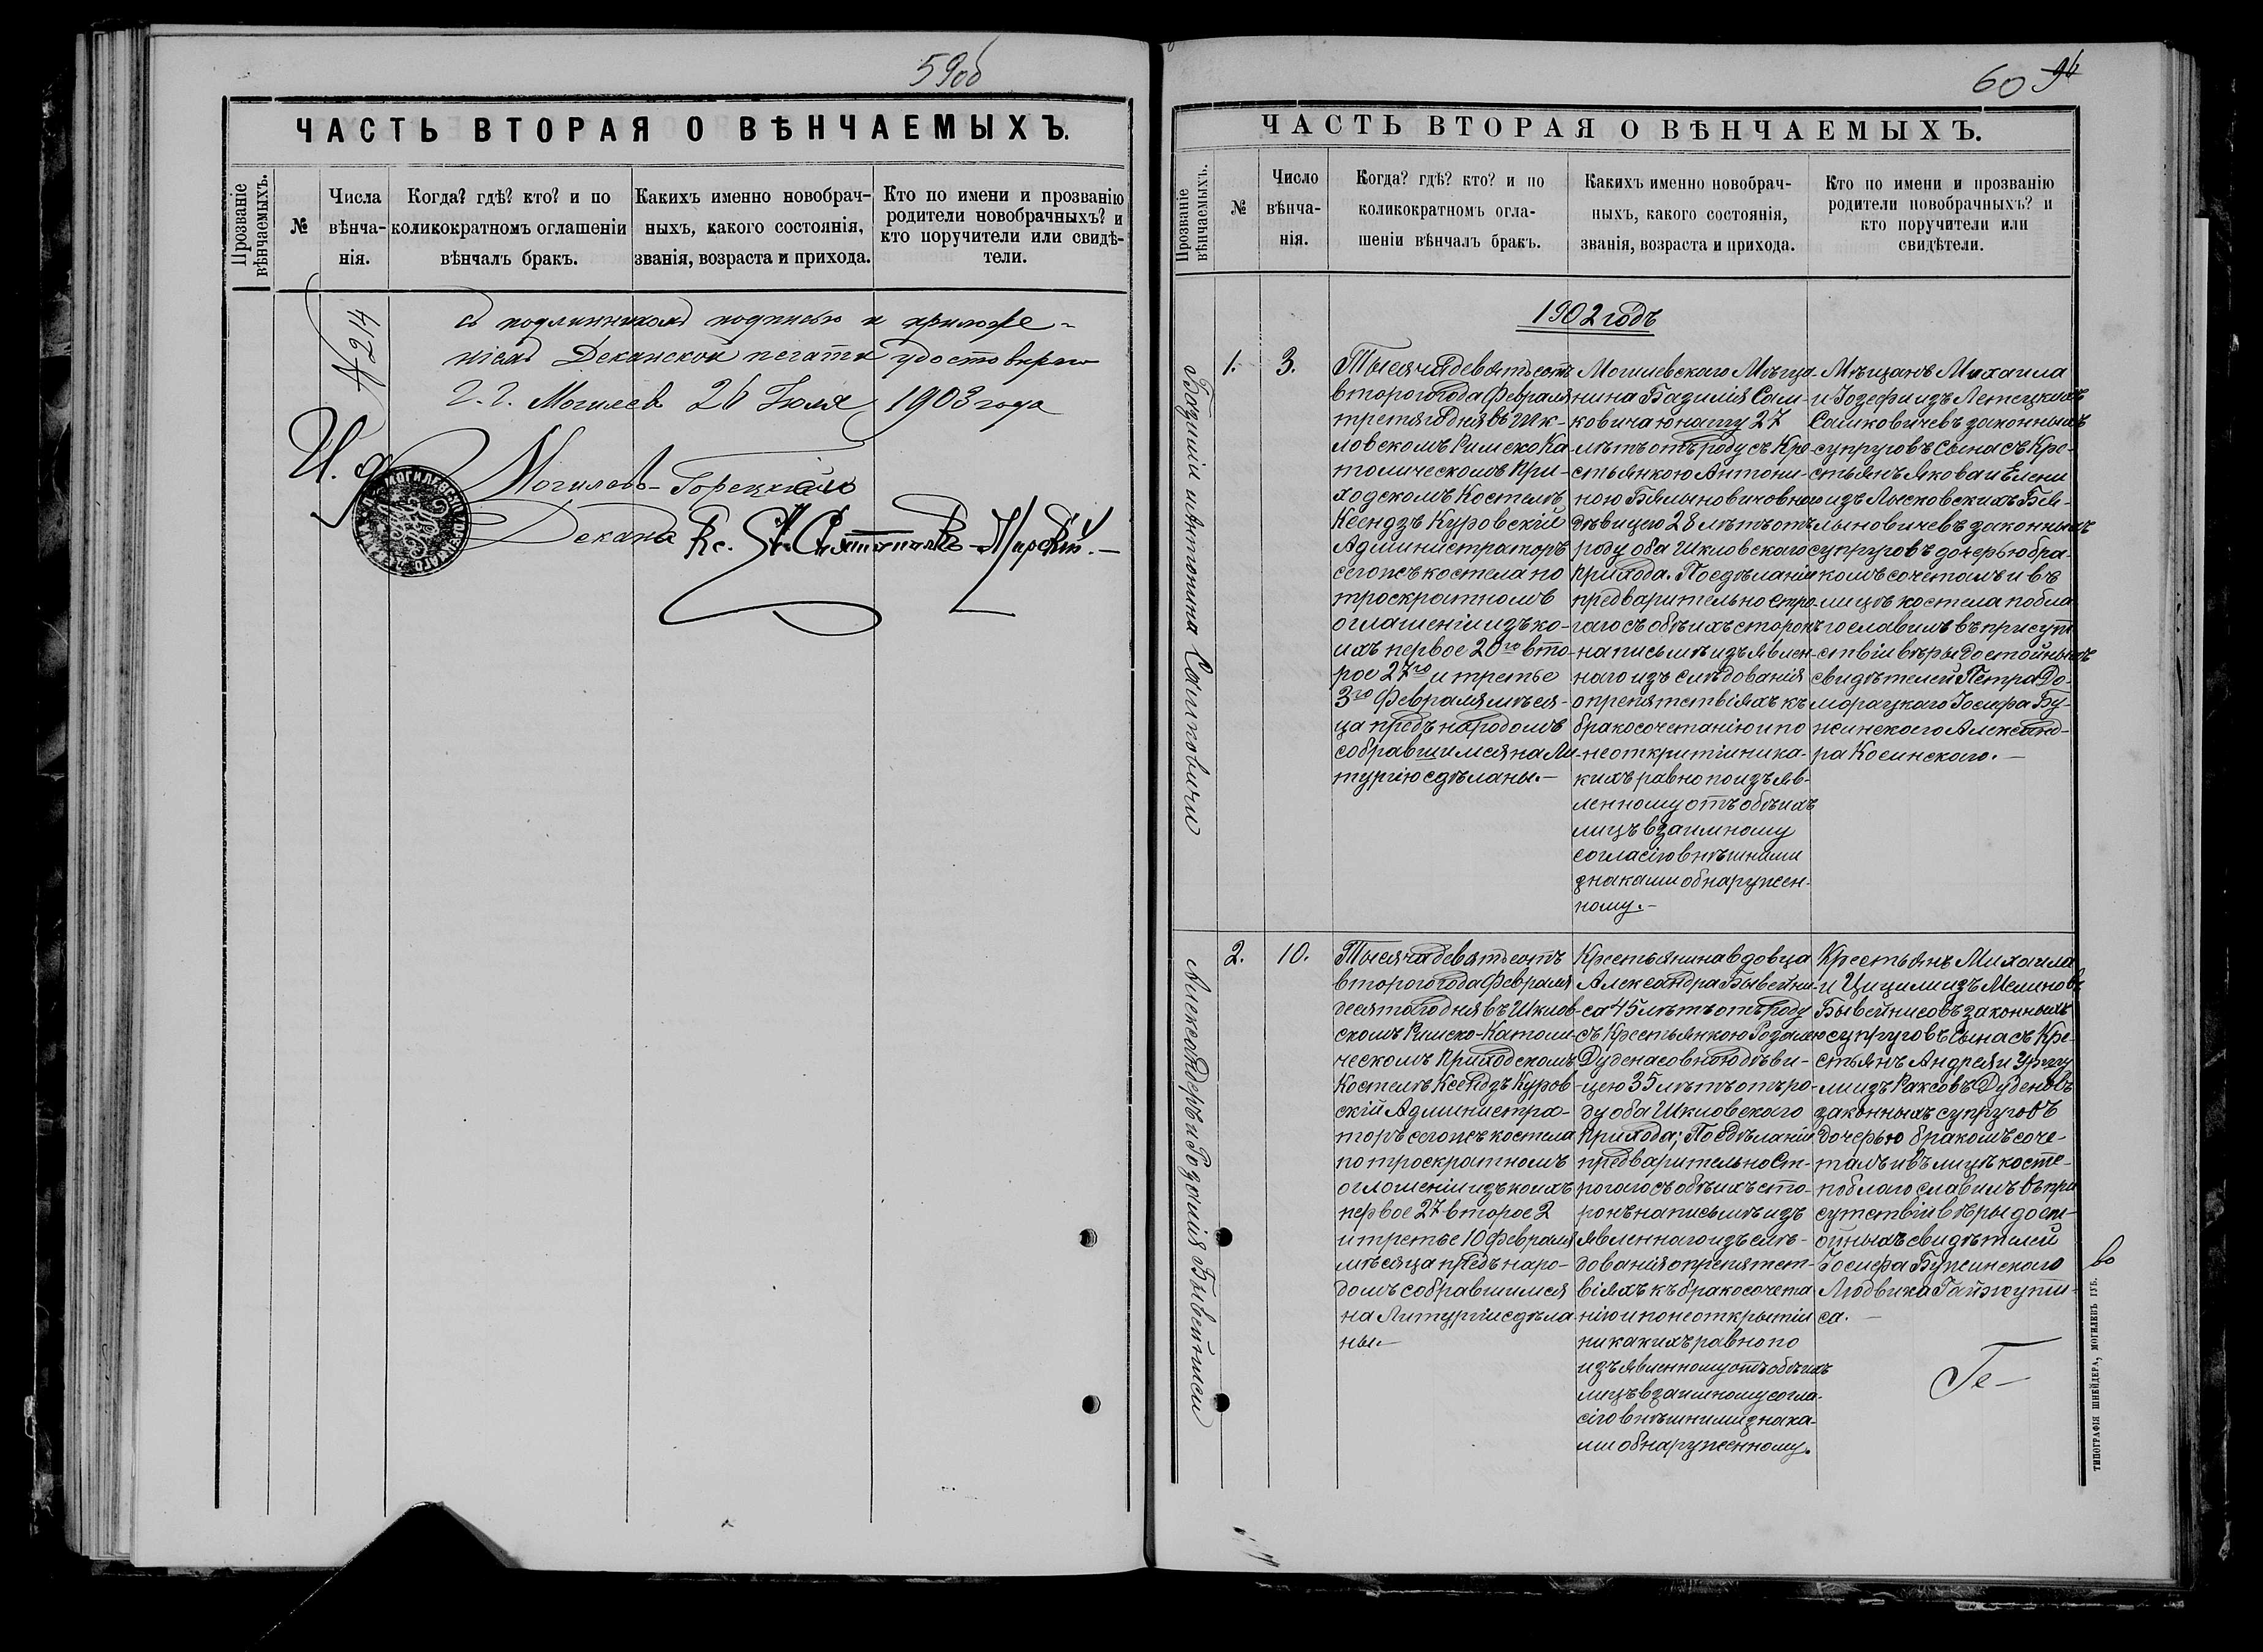 59об
ЧАСТЬ ВТОРАЯ О ВѢНЧАЕМЫХЪ.
Прозваніе вѣнчаемыхъ.
№
Числа
вѣнча-
нія.
Когда? гдѣ? кто? и по
коликократномъ оглашеніи
вѣнчалъ бракъ.
Какихъ именно новобрач-
ныхъ, какого состоянія,
званія, возраста и прихода.
Кто по имени и прозванію
родители новобрачныхъ? и
кто поручители или свидѣ-
тели.
№ 214
съ подлинникомъ подписью и приложе-
ніемъ Деканской печати удостовѣряю
Г. Г. Могилевъ 26 Іюля 1903 года
И. д.
Могилевъ-Горецкаго
Декана Кс.
60
ЧАСТЬ ВТОРАЯ О ВѢНЧАЕМЫХЪ.
Прозваніе
вѣнчаемыхъ.
№
Число
вѣнча-
нія.
Когда? гдѣ? кто? и по
коликократномъ огла-
шеніи вѣнчалъ бракъ.
Какихъ именно новобрач-
ныхъ, какого состоянія,
званія, возраста и прихода.
Кто по имени и прозванію
родители новобрачныхъ? и
кто поручители или
свидѣтели.
1902 годъ
Базилій и Антонина Сашковичи
1.
3.
Тысяча девятьсотъ
второго года Февраля
третяго дня въ Шк-
ловскомъ Римско Ка-
толическомъ При-
ходскомъ Костелѣ
Ксендзъ Куровскій
Администраторъ
сегожъ костела по
троекратномъ
оглашеніи изъ ко-
ихъ первое 20го вто-
рое 27го и третье
3го Февраля мѣся-
ца предъ народомъ
собравшимся на Ли-
тургію сдѣланы.-
Могилевскаго Мѣща-
нина Базилія Саш-
ковича юношу 27
лѣтъ отъ роду съ Кре-
стьянкою Антони-
ною Бялыновичовною
дѣвицею 28 лѣтъ отъ
роду оба Шкловскаго
прихода. По сдѣланіи
предварительно стро-
гаго съ обѣихъ сторонъ
на письмѣ изъявлен-
наго изъ слѣдованія
о препятствіяхъ къ
бракосочетанію и по
неоткритіи ника-
кихъ равно по изъяв-
ленному отъ обѣихъ
лицъ взаимному
согласію внѣшними
знаками обнаружен-
ному.-
Мѣщанъ Михаила
и Іозефы изъ Летецкихъ
Сашковичевъ законныхъ
супруговъ сына съ Кре-
стьянъ Якова и Елены
изъ Лысковскихъ Бя-
лыновичевъ законныхъ
супруговъ дочерью бра-
комъ сочеталъ и въ
лицѣ костела побла-
гославилъ въ присут-
ствіи вѣры достойныхъ
свидѣтелей Петра До-
морацкаго Іосифа Бу-
жинскаго Александ-
ра Косинскаго.-
Александеръ и Розалія Бывейниси
2.
10.
Тысяча девятьсотъ
второго года Февраля
десятаго дня въ Шклов-
скомъ Римско-Католи-
ческомъ Приходскомъ
Костелѣ Ксендзъ Куров-
скій Администра-
торъ сегожъ костела
по троекратномъ
оглошеніи изъ коихъ
первое 27 второе 2
и третье 10 Февраля
мѣсяца предъ наро-
домъ собравшимся
на Литургіи сдѣла
ны.-
Крестьянина вдовца
Александра Бывейни-
са 45 лѣтъ отъ роду
съ Крестьянкою Розаліею
Дуденасовною дѣви-
цею 35 лѣтъ отъ ро-
ду оба Шкловскаго
прихода; По сдѣланіи
предварительно ст-
рогаго съ обѣихъ сто-
ронъ на письмѣ изъ
явленнаго изъ слѣ-
дованія о препятст-
віяхъ къ бракосочета
нію и по неоткрытіи
никакихъ равно по
изъявленному отъ обѣихъ
лицъ взаимному согла-
сію внѣшними знака-
ми обнаруженному.
Крестьянъ Михаила
и Цициліи изъ Мешновъ
Бывейнисовъ законныхъ
супруговъ сына съ Кре-
стьянъ Андрея и Уршу
ли изъ Раксовъ Дуденовъ
законныхъ супруговъ
дочерью бракомъ соче-
талъ и въ лицѣ косте-
поблагославилъ въ при
сутствіи вѣры дост-
ойныхъ свидѣтелей
Іосифа Бужинскаго
Людвика Гайжути-
са.-
во
Ге-
ТИПОГРАФІЯ ШНЕЙДЕРА, МОГИЛЕВЪ ГУБ.